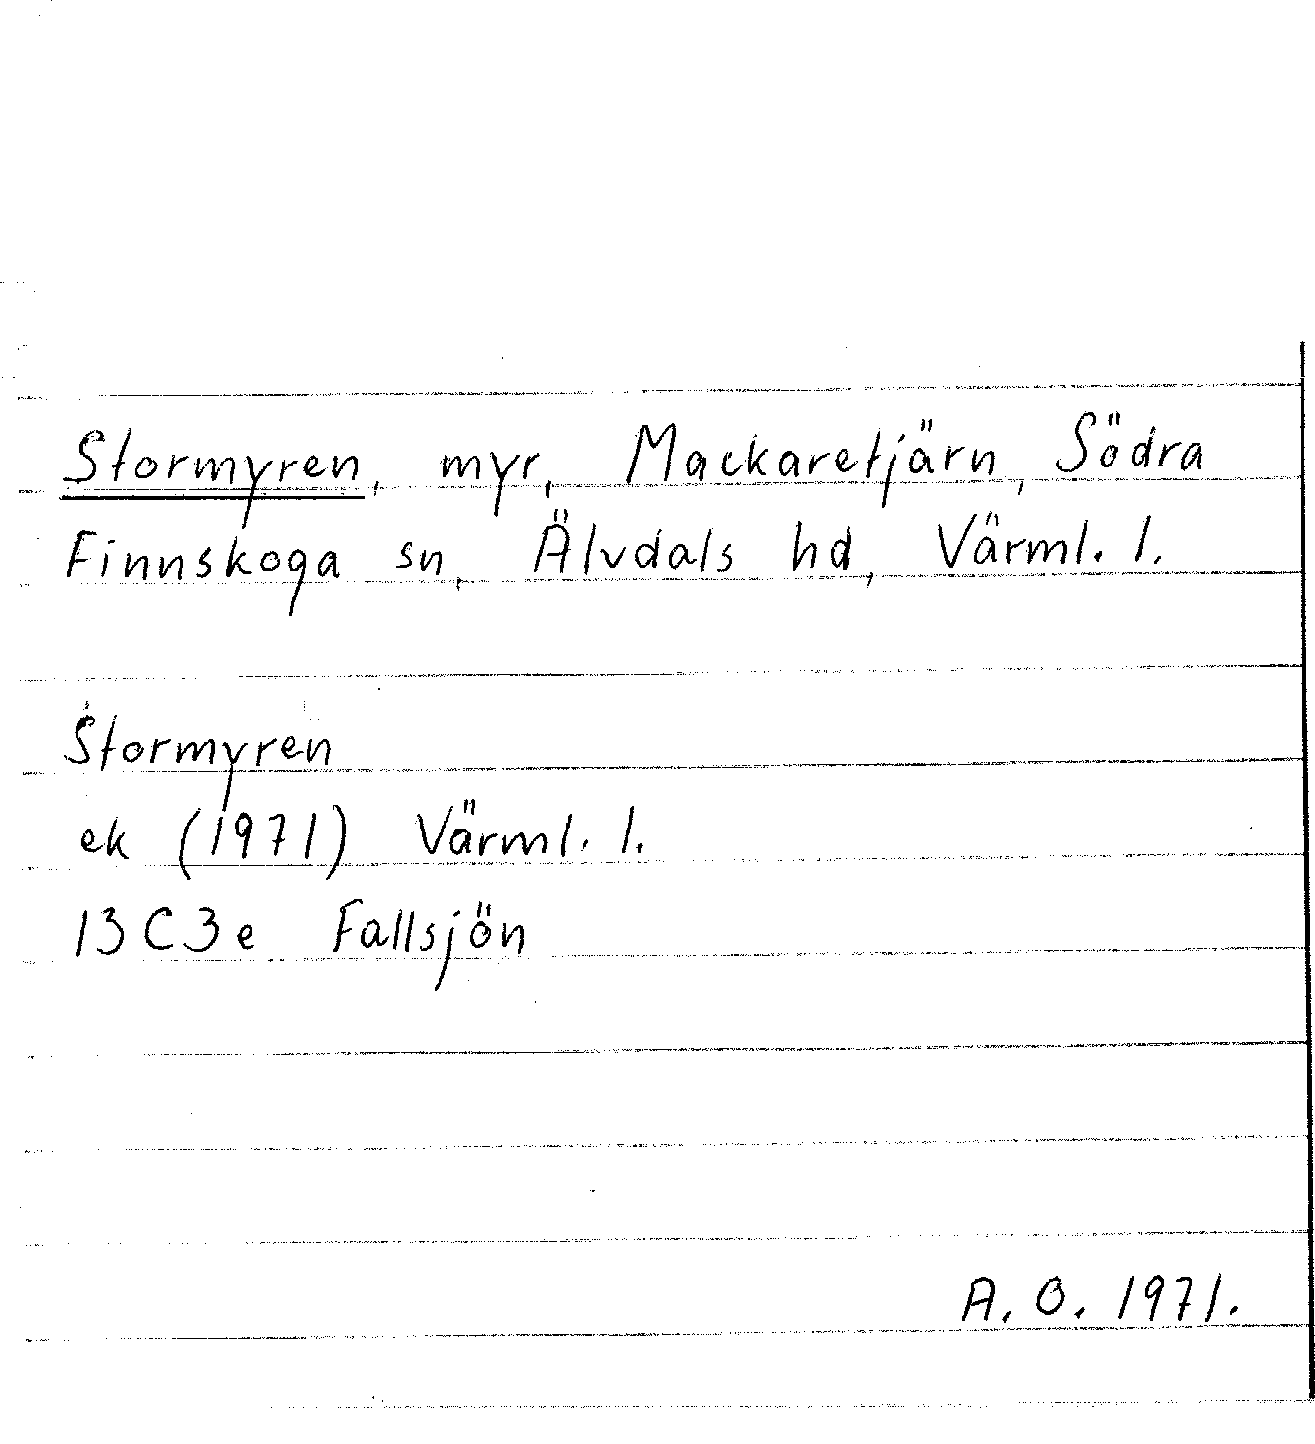 Stormyren, myr, Mackaretjärn, Södra
Finnskoga sn, Älvdals hd, Värml. l.
Stormyren
ek (1971) Värml. l.
13C3e Fallsjön
A. O. 1971.